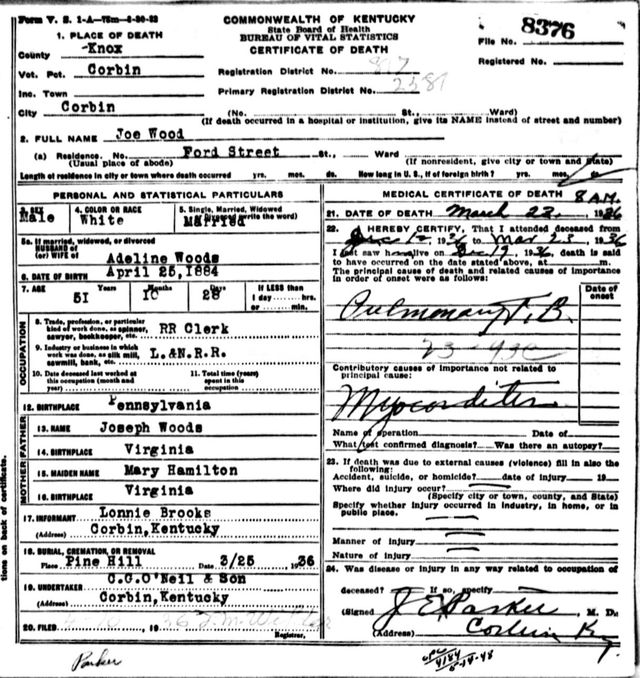 Form V. S. 1-A—75m—6-30-33
COMMONWEALTH OF KENTUCKY
State Board of Health
BUREAU OF VITAL STATISTICS
CERTIFICATE OF DEATH
File No. 8376
Registered No.
1. PLACE OF DEATH
County Knox
Vot. Pct. Corbin
Registration District No.
Inc. Town
Primary Registration District No.
City Corbin (No. St., Ward)
(If death occurred in a hospital or institution, give its NAME instead of street and number)
2. FULL NAME Joe Wood
(a) Residence. No. Ford Street St., Ward
(Usual place of abode) (If nonresident, give city or town and State)
Length of residence in city or town where death occurred yrs. mos. ds. How long in U. S., if of foreign birth? yrs. mos. ds.
PERSONAL AND STATISTICAL PARTICULARS
3. SEX Male
4. COLOR OR RACE White
5. Single, Married, Widowed or Divorced (write the word) Married
5a. If married, widowed, or divorced
HUSBAND of
(or) WIFE of Adeline Woods
6. DATE OF BIRTH April 25, 1884
7. AGE 51 Years 10 Months 28 Days If LESS than 1 day hrs. or min.
OCCUPATION
8. Trade, profession, or particular kind of work done, as spinner, sawyer, bookkeeper, etc. RR Clerk
9. Industry or business in which work was done, as silk mill, sawmill, bank, etc. L.&N.R.R.
10. Date deceased last worked at this occupation (month and year)
11. Total time (years) spent in this occupation
12. BIRTHPLACE Pennsylvania
FATHER
13. NAME Joseph Woods
14. BIRTHPLACE Virginia
MOTHER
15. MAIDEN NAME Mary Hamilton
16. BIRTHPLACE Virginia
17. INFORMANT Lonnie Brooks
(Address) Corbin, Kentucky
18. BURIAL, CREMATION, OR REMOVAL
Place Pine Hill Date 3/25 1936
19. UNDERTAKER C.G.O'Neil & Son
(Address) Corbin, Kentucky
20. FILED 19
Registrar.
MEDICAL CERTIFICATE OF DEATH 8 A.M.
21. DATE OF DEATH March 23, 1936
22. I HEREBY CERTIFY, That I attended deceased from
1936 to Mar 23, 1936
I last saw him alive on 1936, death is said
to have occurred on the date stated above, at m.
The principal cause of death and related causes of importance
in order of onset were as follows:
Date of onset
Pulmonary T.B.
23-
Contributory causes of importance not related to
principal cause:
Myocarditis
Name of operation Date of
What test confirmed diagnosis? Was there an autopsy?
23. If death was due to external causes (violence) fill in also the
following:
Accident, suicide, or homicide? date of injury 19
Where did injury occur?
(Specify city or town, county, and State)
Specify whether injury occurred in industry, in home, or in
public place.
Manner of injury
Nature of injury
24. Was disease or injury in any way related to occupation of
deceased? If so, specify
(Signed J E Parker, M. D.
(Address) Corbin Ky.
Parker
4184
5-14-48
tions on back of certificate.